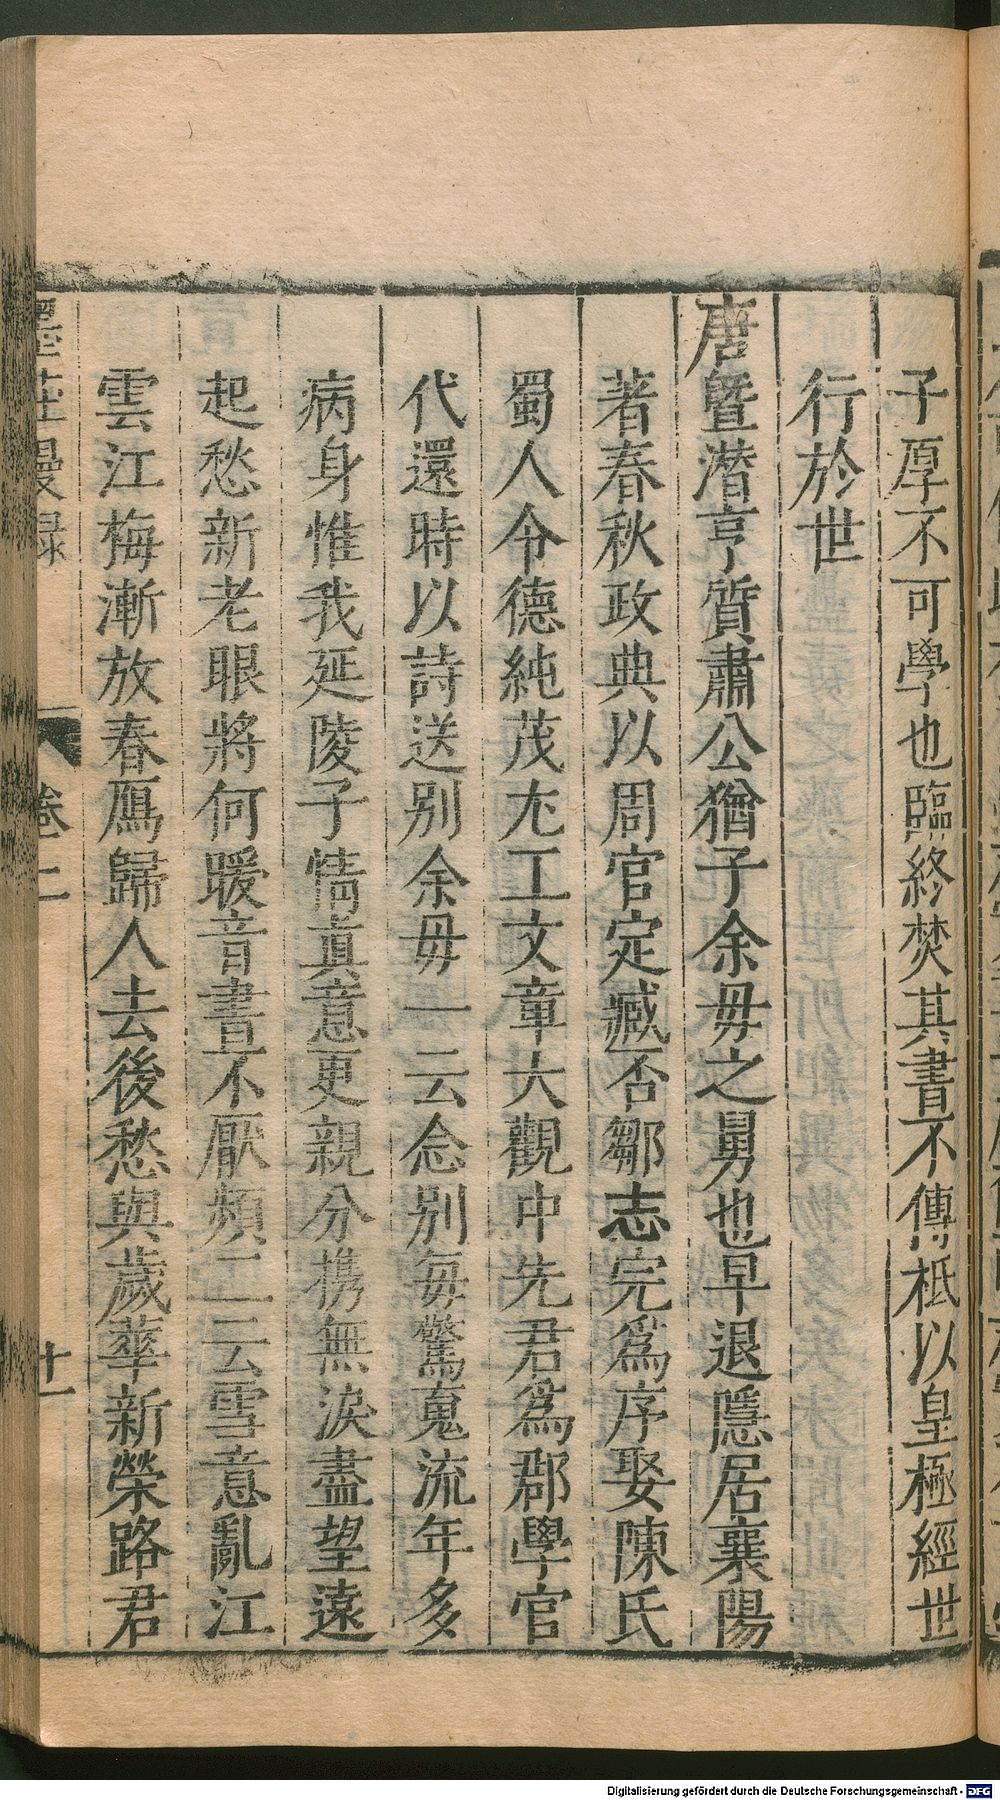 子厚不可學也臨終焚其書不傳祗以皇極經世
行於世
唐曁潜亨質肅公猶子余毋之舅也早退隱居襄陽
著春秋政典以周官定臧否鄒志完爲序娶陳氏
蜀人令德純茂尢工文章大觀中先君爲郡學官
代還時以詩送别余毋一云念别毎驚䰟流年多
病身惟我延陵子情真意更親分携無淚盡望遠
起愁新老眼將何暖音書不厭頻二云雪意亂江
雲江梅漸放春鴈歸人去後愁與歲華新榮路君
墨莊漫録
卷二
十一
Digitalisierung gefördert durch die Deutsche Forschungsgemeinschaft - DFG